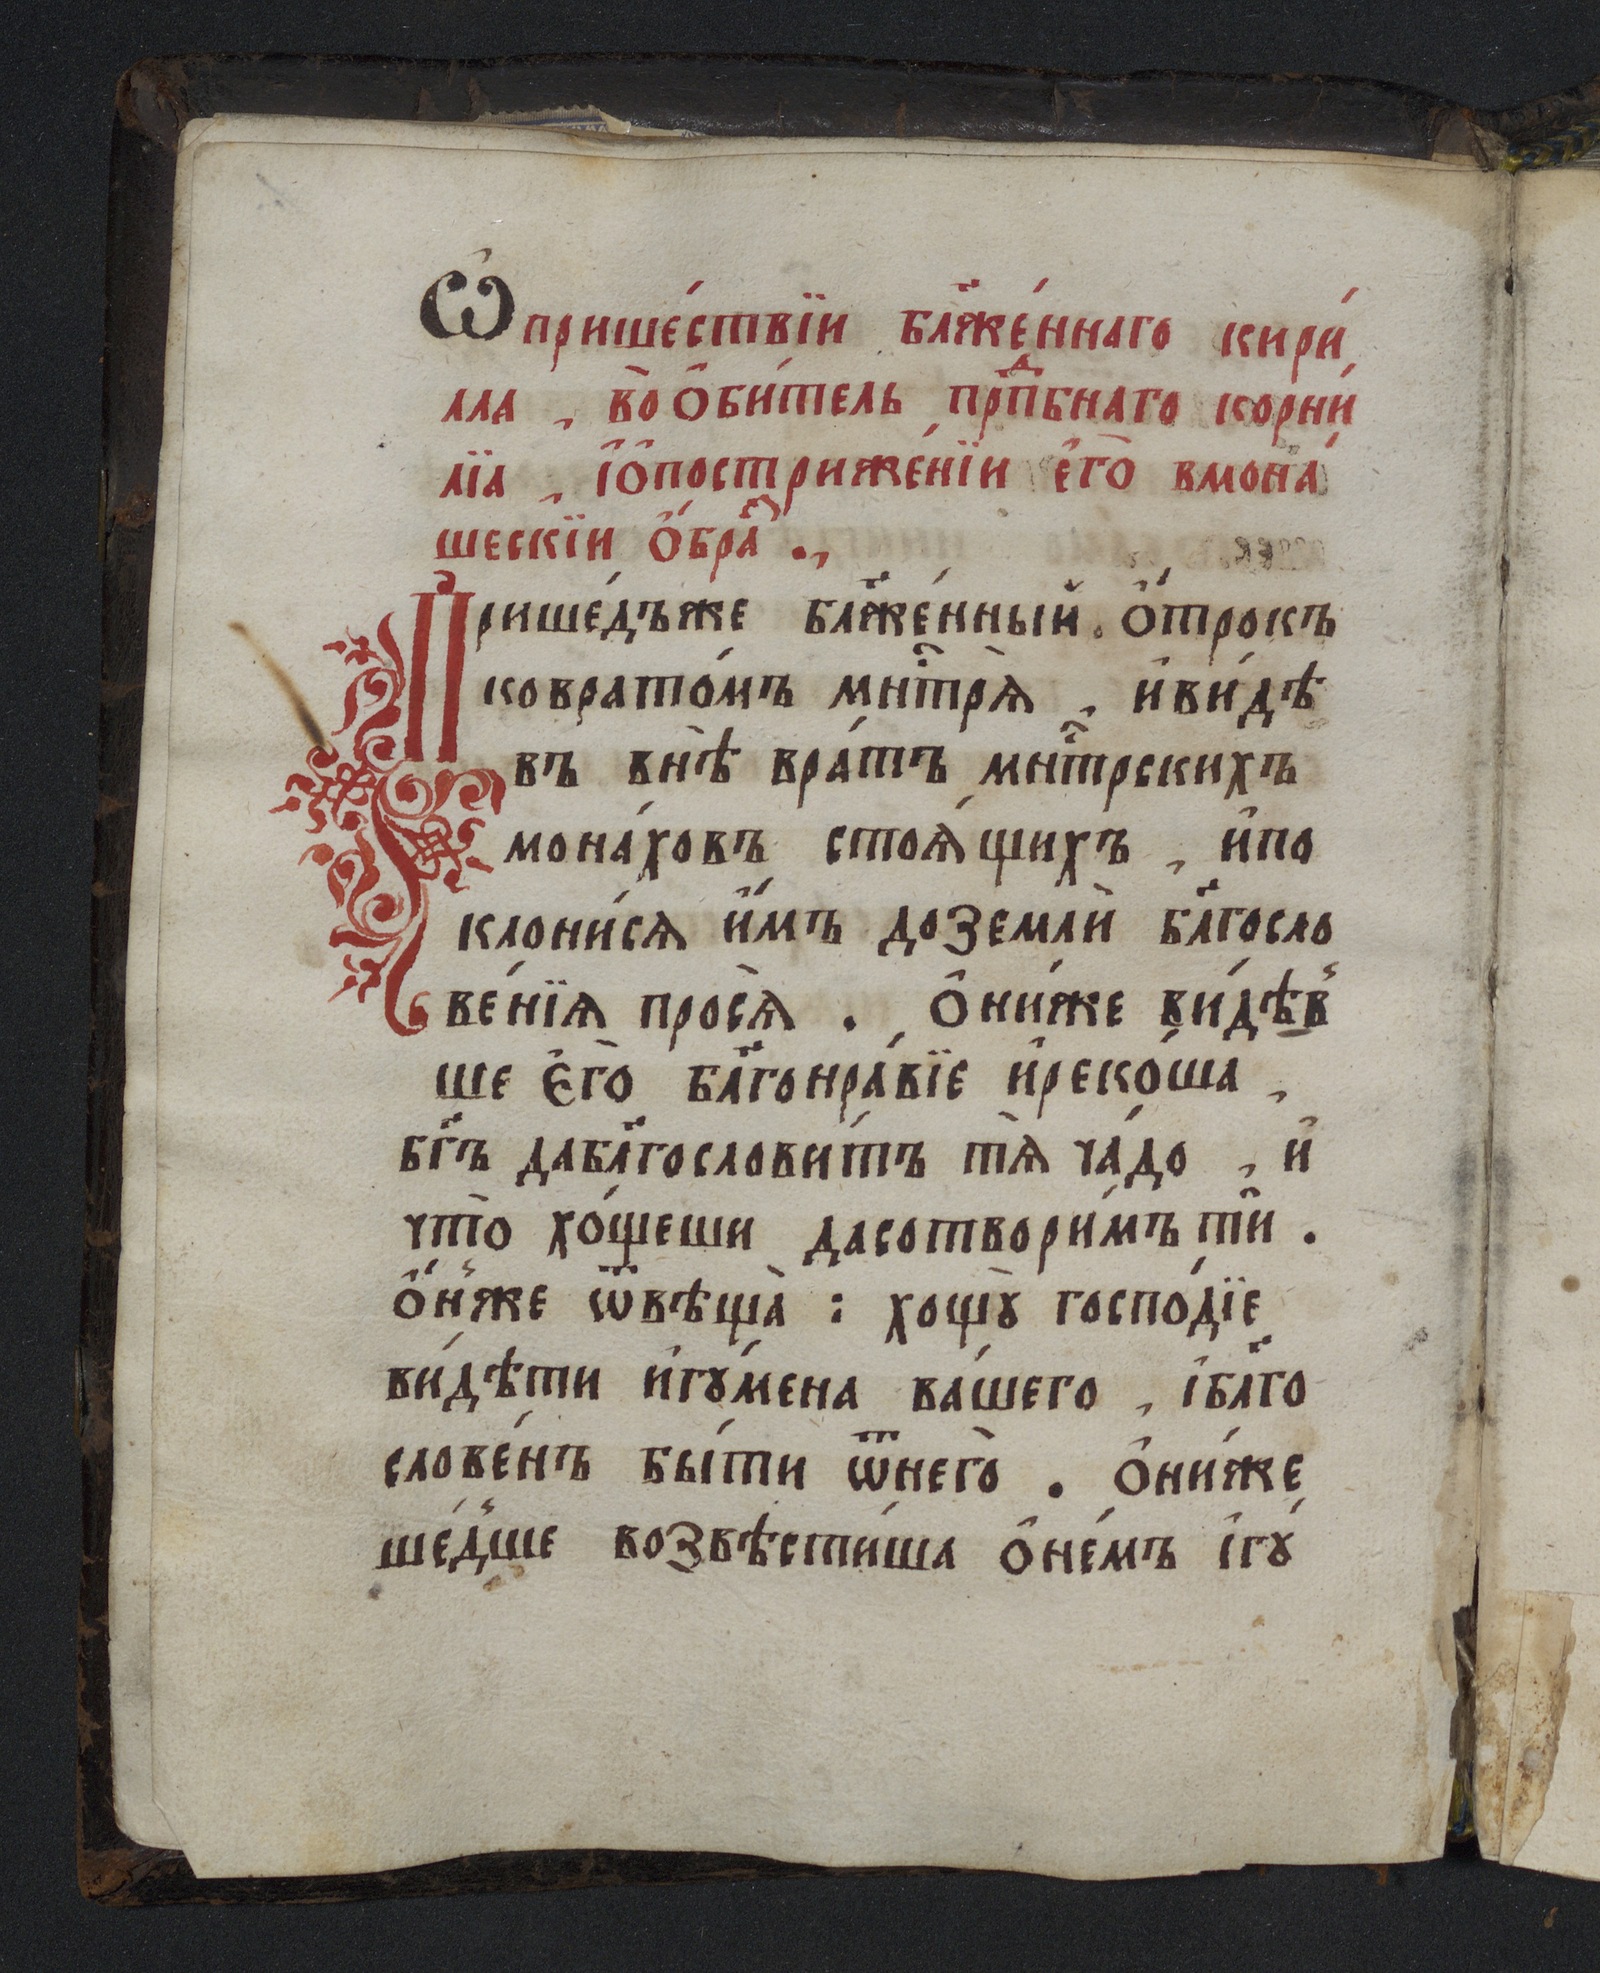 Ѽ прише́ствїи бл҃же́ннаго кири́
лла , во̀ ѻ҆би́тель прⷣпбнаго корни́
лїа , і҆ ѻ҆пострижє́нїи є҆го̀ вмона́
шєскїи ѻ҆́браⷥ .,
Прише́дъже бл҃же́нный . ѻ҆́трокъ
ковратѡ́мъ мн҃трѧ̀ , и҆ви́дѣ
въ внѣ̀ вра́тъ мн҃трскихъ
мона́ховъ стоѧ́щихъ , и҆по
клони́сѧ и҆̀мъ доземлѝ бл҃госло
ве́нїѧ просѧ̀ . ѻ҆ни́же ви́дѣв
ше є҆го̀ бл҃гонра́вїе и҆реко́ша ,
бг҃ъ дабл҃гослови́тъ тѧ̀ ча́до , и҆
что̀ хо́щеши дасотвори́мъ тѝ .
ѻ҆́нже ѿвѣща̀ : хощꙋ̀ госпо́дїе
ви́дѣти и҆гꙋ́мена ва́шего , і҆бл҃го
слове́нъ бы́ти ѿнего̀ . ѻ҆ни́же
ше́дше возвѣсти́ша ѻ҆не́мъ і҆гꙋ́